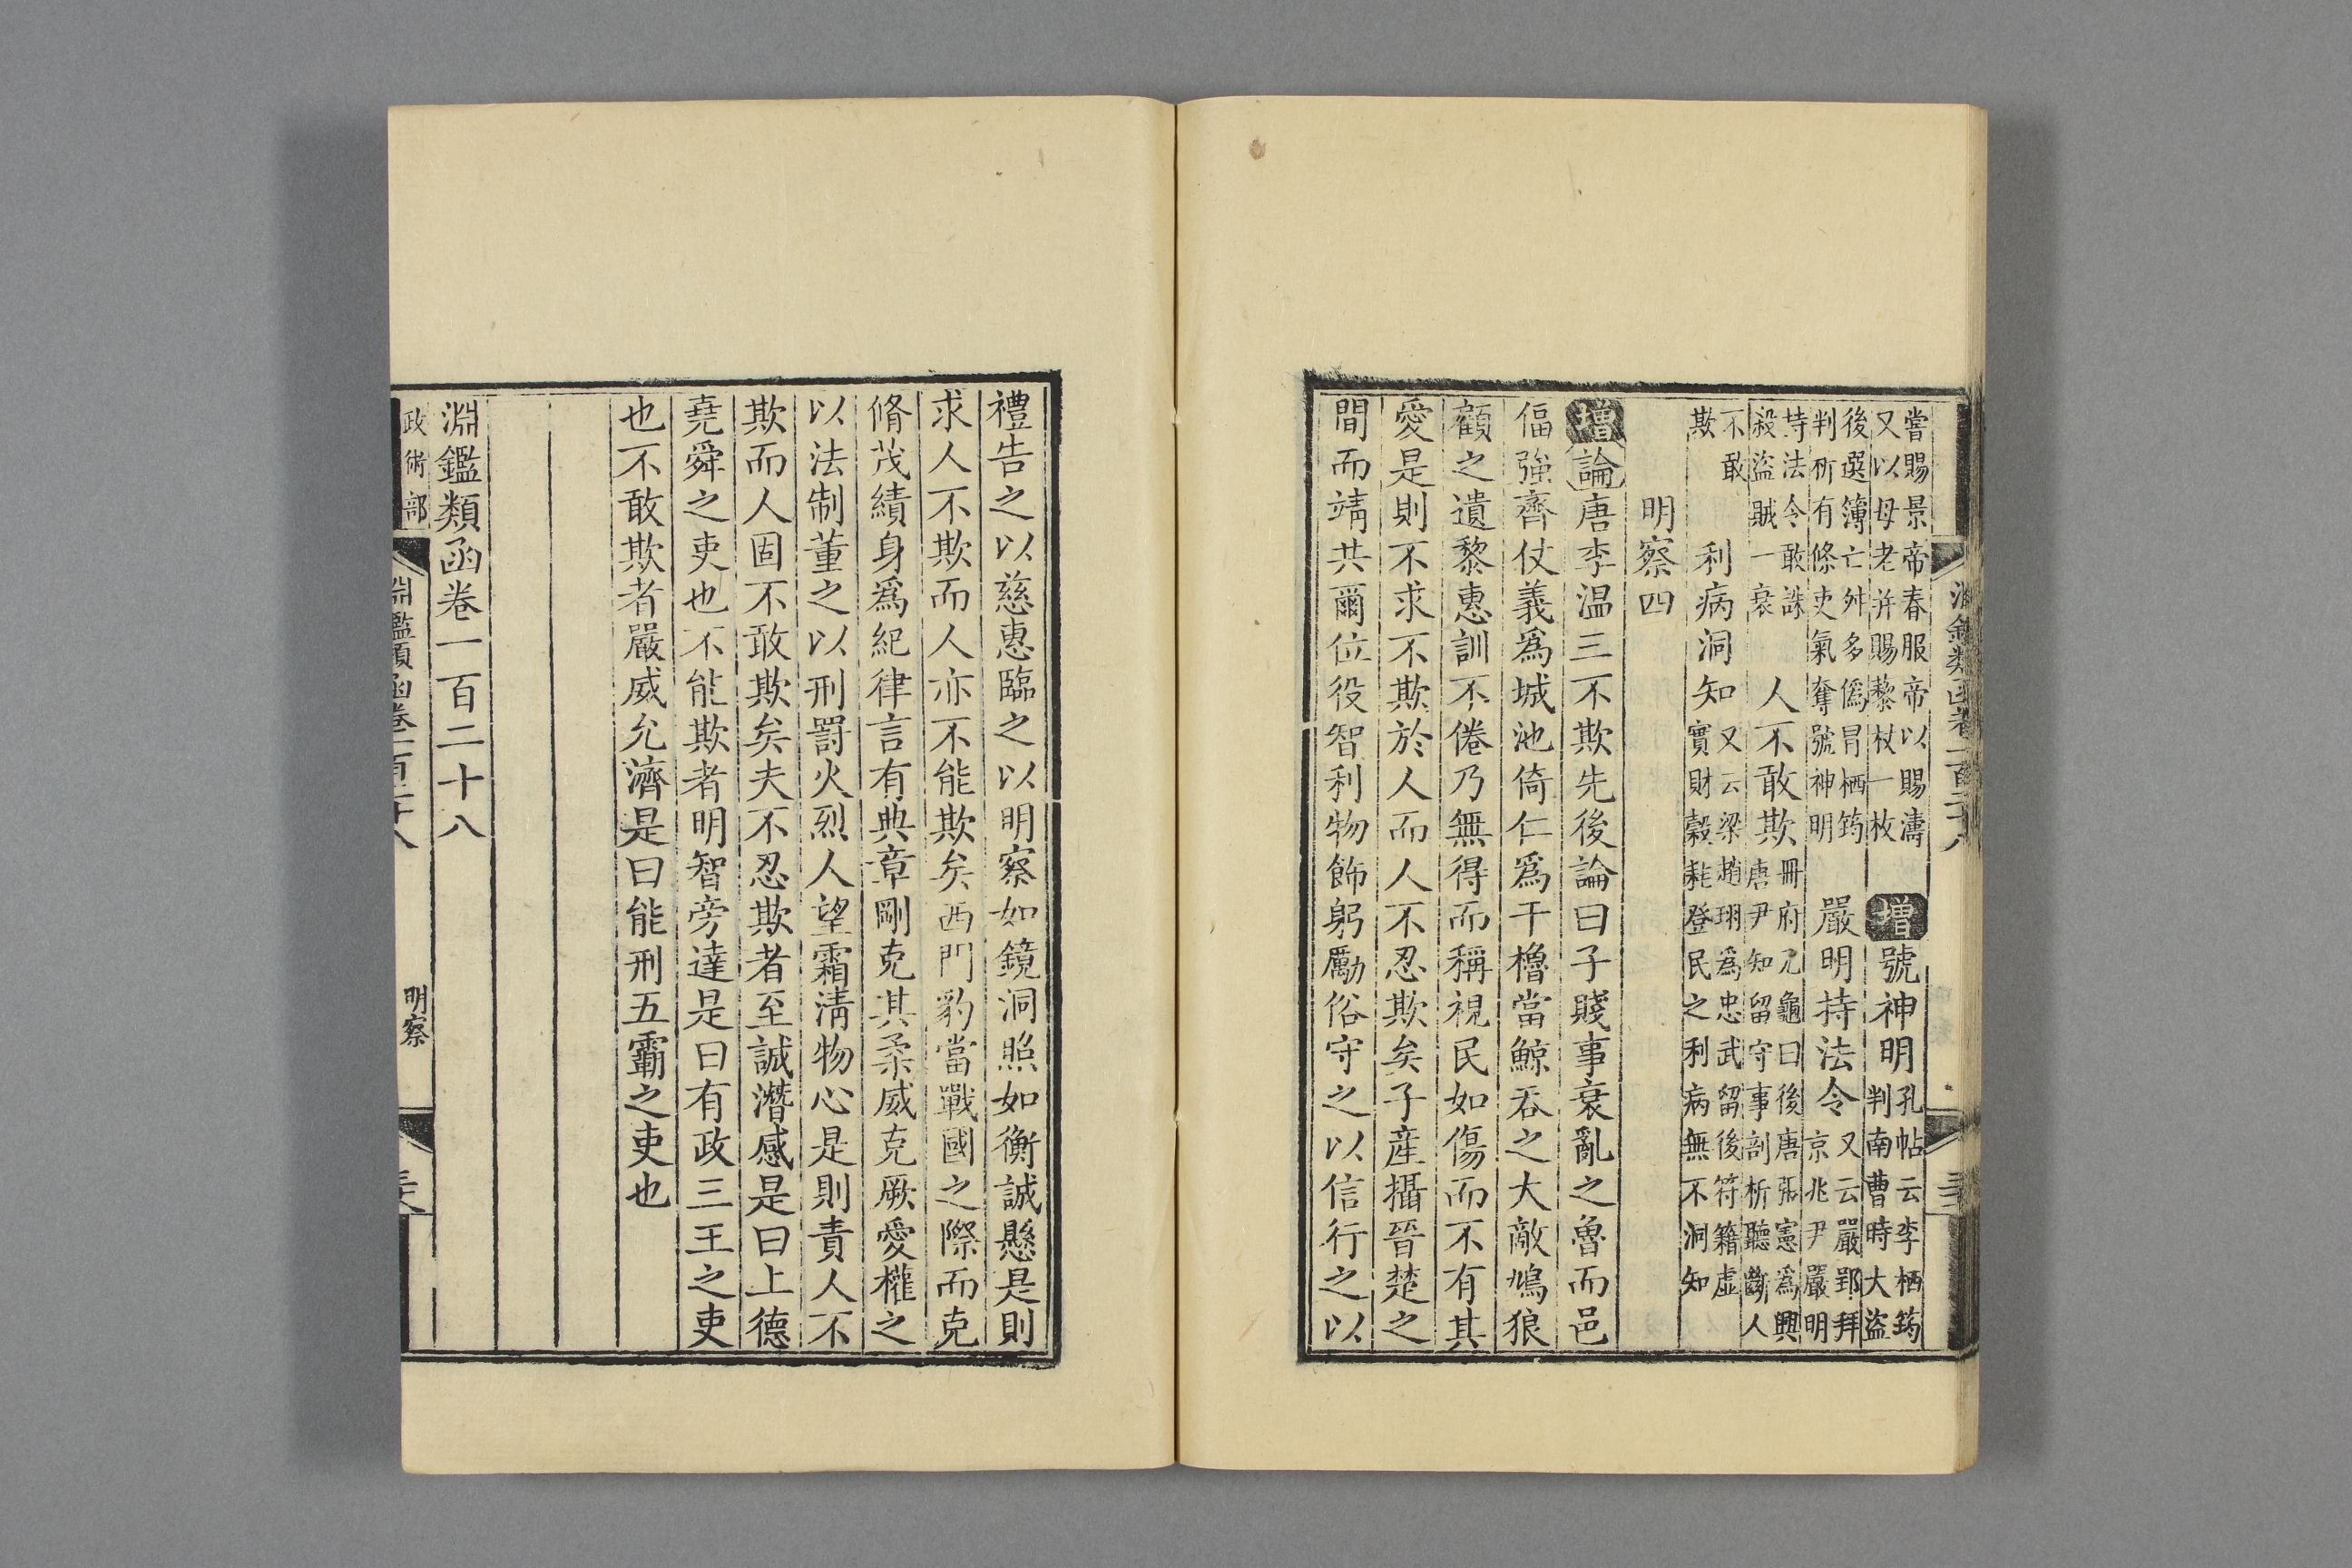 淵鑑類函卷一百二十八
嘗賜景帝春服帝以賜濤又以母老并賜藜杖一枚 增號神明孔帖云李栖筠判南曹時大盜
後選簿亡舛多僞冒栖筠判析有條吏氣奪號神明 嚴明持法令又云嚴郢拜京兆尹嚴明
持法令敢誅殺盜賊一衰 人不敢欺冊府元龜曰後唐張憲爲興唐尹知留守事剖析聽斷人
不敢欺 利病洞知又云梁趙珝爲忠武留後符籍虛實財穀耗登民之利病無不洞知
明察四
增論唐李温三不欺先後論曰子賤事衰亂之魯而邑
偪強齊仗義爲城池倚仁爲干櫓當鯨吞之大敵鳩狼
顧之遺黎惠訓不倦乃無得而稱視民如傷而不有其
愛是則不求不欺於人而人不忍欺矣子產攝晉楚之
間而靖共爾位役智利物飾躬勵俗守之以信行之以
禮告之以慈惠臨之以明察如鏡洞照如衡誠懸是則
求人不欺而人亦不能欺矣西門豹當戰國之際而克
脩茂績身爲紀律言有典章剛克其柔威克厥愛權之
以法制董之以刑罰火烈人望霜淸物心是則責人不
欺而人固不敢欺矣夫不忍欺者至誠潛感是曰上德
堯舜之吏也不能欺者明智旁達是曰有政三王之吏
也不敢欺者嚴威允濟是曰能刑五霸之吏也
淵鑑類函卷一百二十八
政術部 淵鑑類函卷一百二十八 明察